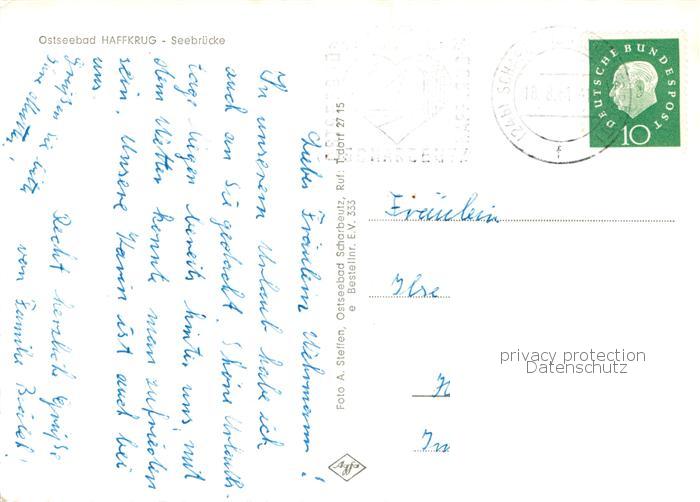 Ostseebad HAFFKRUG - Seebrücke
Liebes Fräulein Wehrmann!
In unserem Urlaub habe ich
auch an Sie gedacht. Schöne Urlaubs-
tage liegen bereits hinter uns, mit
dem Wetter konnte man zufrieden
sein. Unsere Karin ist auch bei
uns.
Recht herzliche Grüße
von Familie
Grüßen Sie bitte
Ihre Mutter!
Foto A. Steffen, Ostseebad Scharbeutz, Ruf: T.dorf 27 15
e Bestellnr. E.V. 333
Agfa
SCHARBEUTZ
DEUTSCHE BUNDESPOST
10
Fräulein
Ilse
privacy protection
Datenschutz